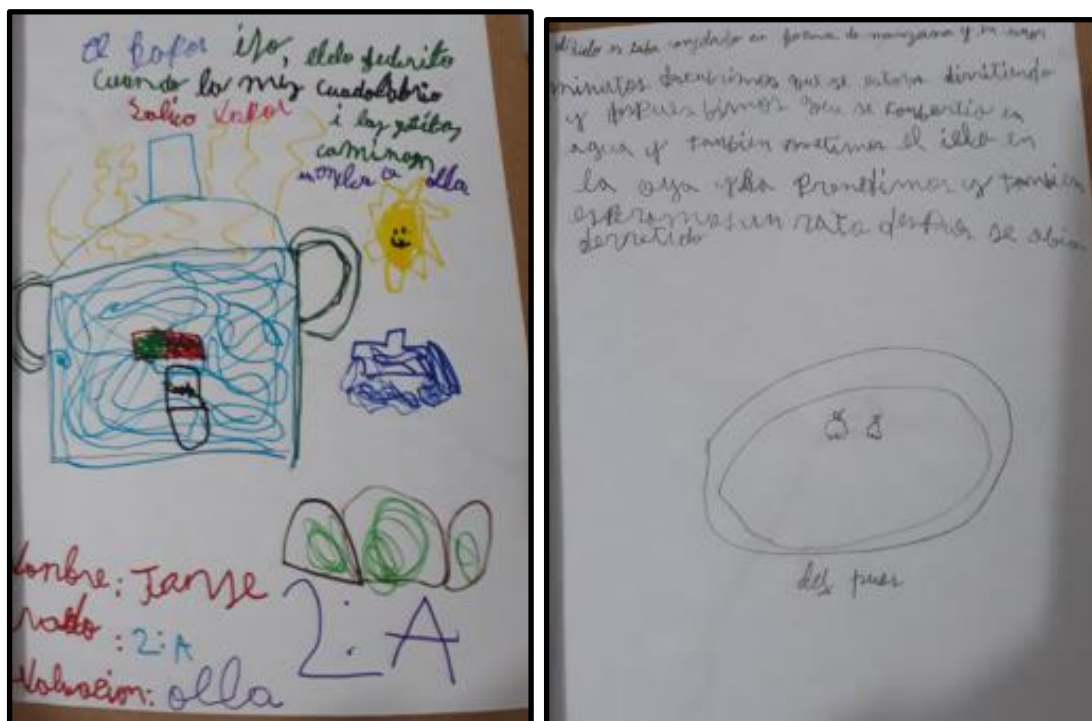 el Bapor iso, elelo dedirito
cuando la miz cuadolabrio
Salico Vapor
i las gotitas
caminan
en la olla
Nombre: Janse
: 2:A
: olla
2:A
el ielo es taba congelado en forma de manzana y en unos
minutos que se estava diritiendo
y despues bimos que se conbertia en
agua y tambien metimos el ielo en
la oya y la prendimos y tambien
esperamos un rato despues se abia
derretido
des pues